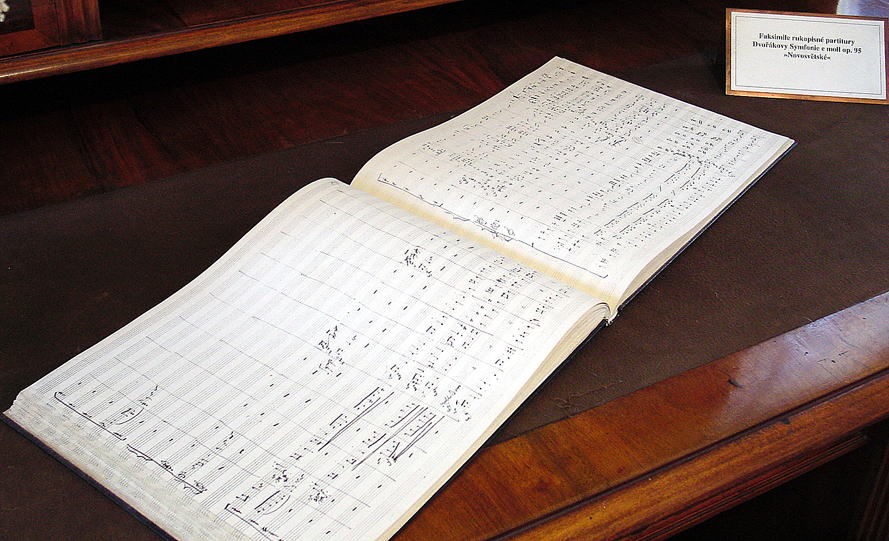 Faksimile rukopisné partitury
Dvořákovy Symfonie e moll op. 95
»Novosvětské«